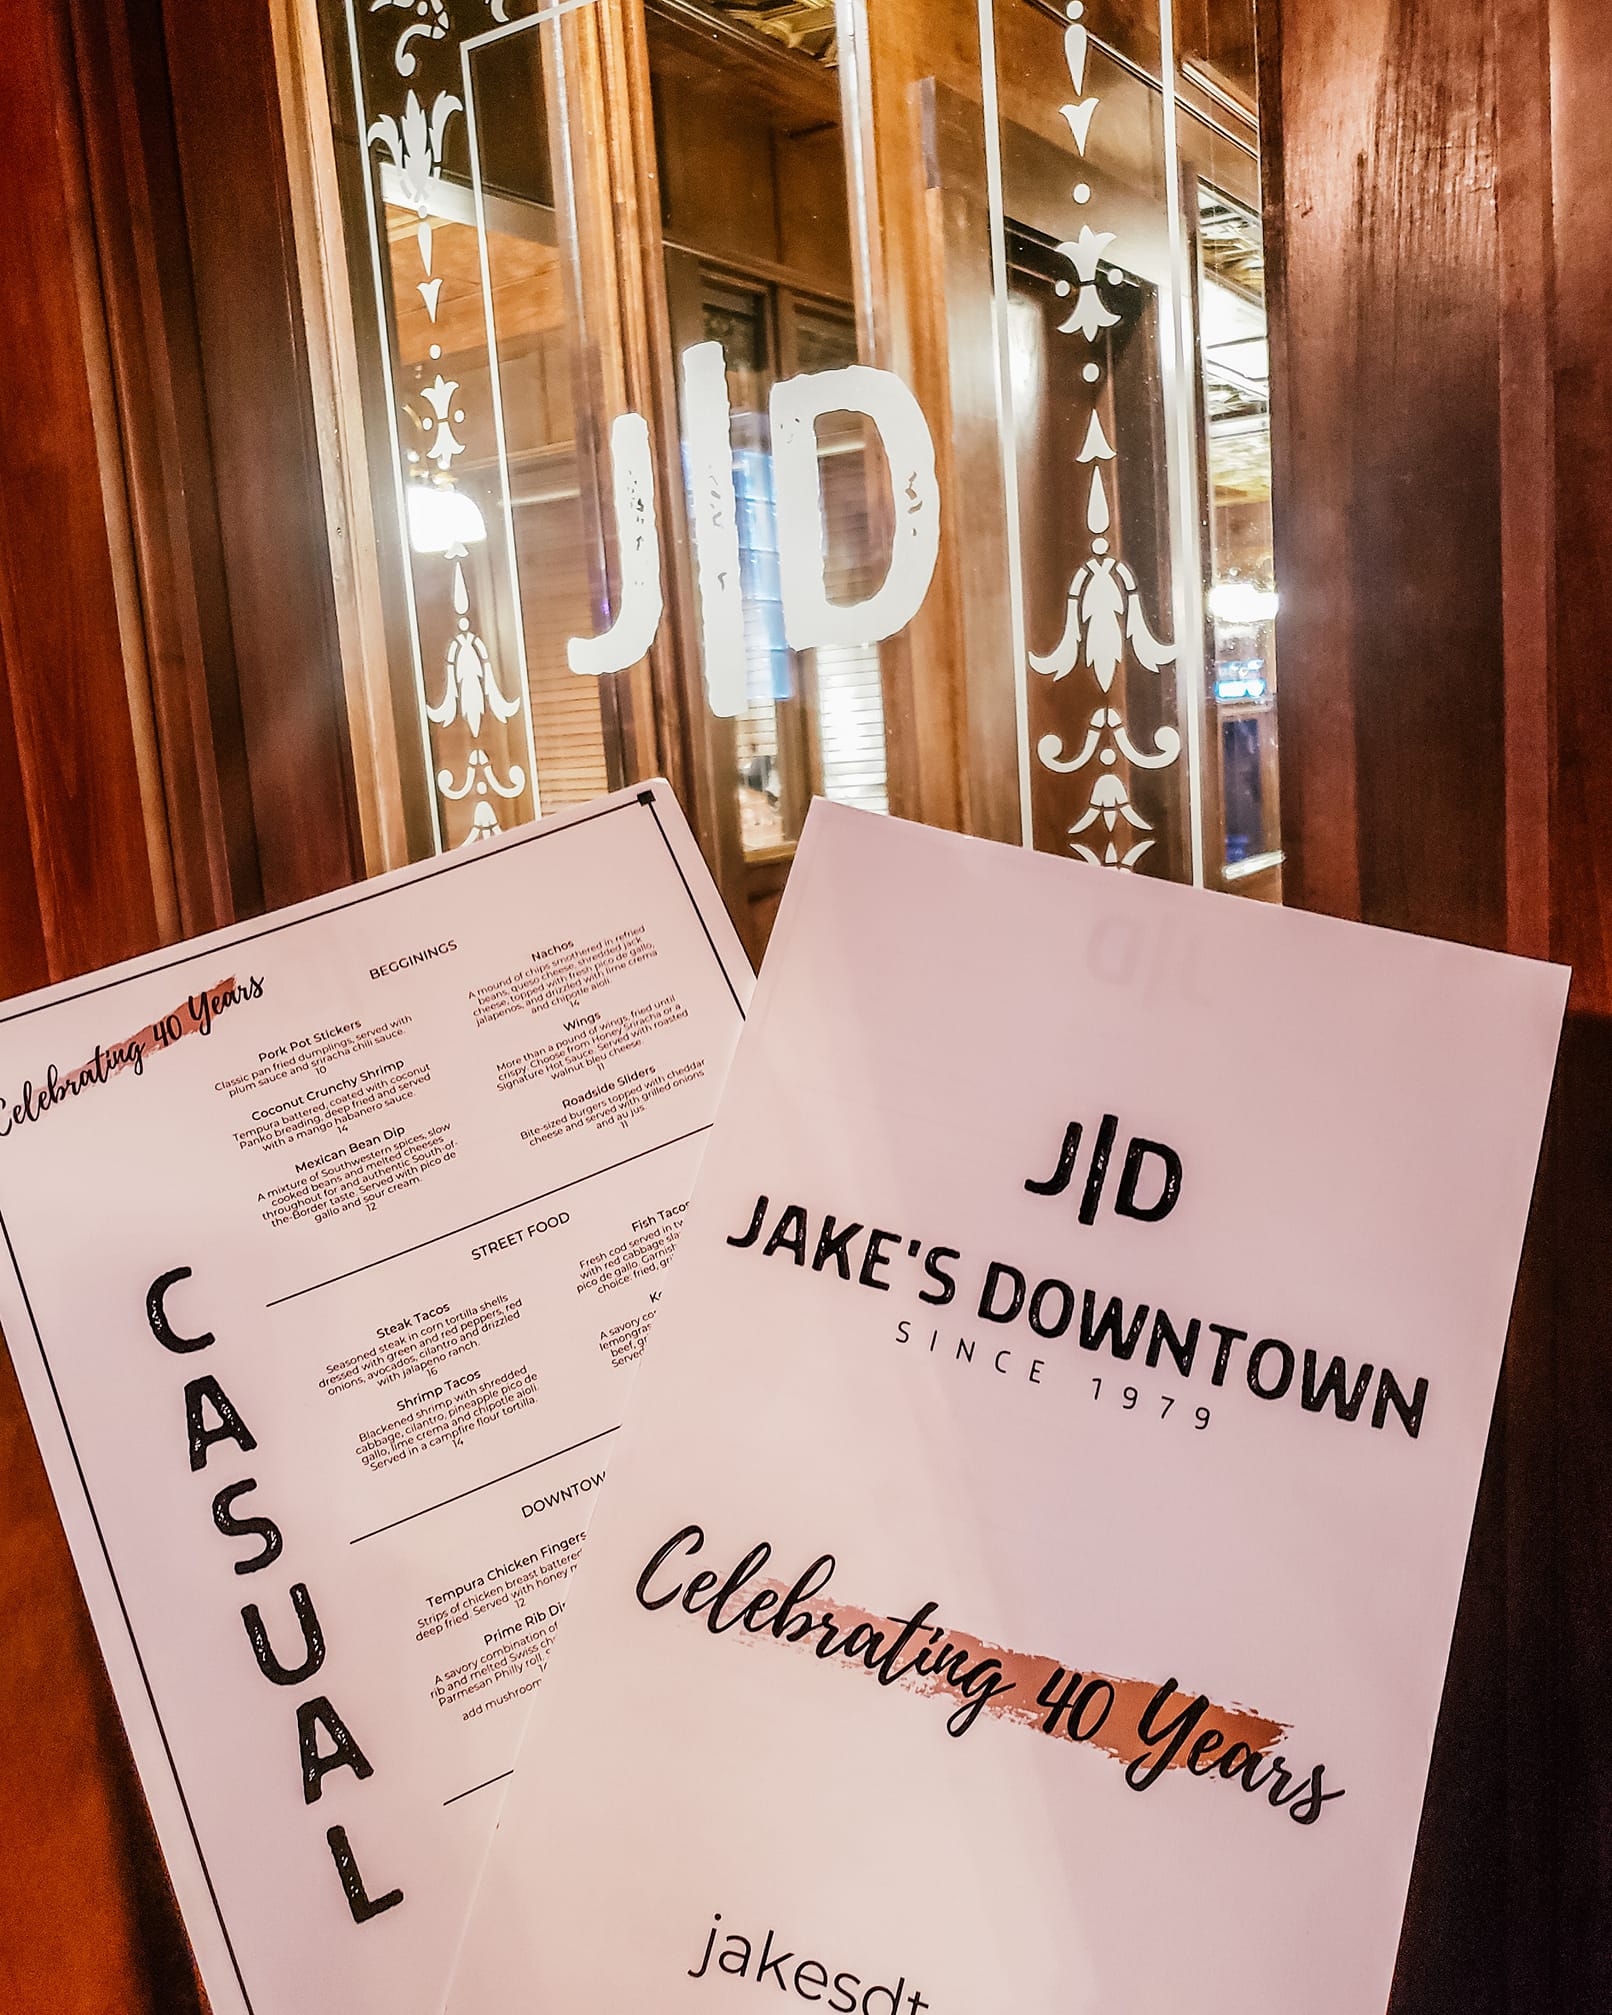 J|D
Celebrating 40 Years
BEGGININGS
Pork Pot Stickers
Classic pan fried dumplings, served with
plum sauce and sriracha chili sauce.
10
Coconut Crunchy Shrimp
Tempura battered, coated with coconut
Panko breading, deep fried and served
with a mango habanero sauce.
14
Mexican Bean Dip
A mixture of Southwestern spices, slow
cooked beans and melted cheeses
throughout for and authentic South-of-
the-Border taste. Served with pico de
gallo and sour cream.
12
Nachos
A mound of chips smothered in refried
beans, queso cheese, shredded jack
cheese, topped with fresh pico de gallo,
jalapenos, and drizzled with lime crema
and chipotle aioli.
14
Wings
More than a pound of wings, fried until
crispy. Choose from Honey Sriracha or a
Signature Hot Sauce. Served with roasted
walnut bleu cheese.
11
Roadside Sliders
Bite-sized burgers topped with cheddar
cheese and served with grilled onions
and au jus.
11
CASUAL
STREET FOOD
Steak Tacos
Seasoned steak in corn tortilla shells
dressed with green and red peppers, red
onions, avocados, cilantro and drizzled
with jalapeno ranch.
16
Shrimp Tacos
Blackened shrimp with shredded
cabbage, cilantro, pineapple pico de
gallo, lime crema and chipotle aioli.
Served in a campfire flour tortilla.
14
Fish Tacos
Fresh cod served in
with red cabbage
pico de gallo.
choice: fried,
A savory
beef,
Served
DOWNTOW
Tempura Chicken Fingers
Strips of chicken breast battered
deep fried. Served with honey
12
Prime Rib
A savory combination of
rib and melted Swiss
Parmesan Philly roll.
add mushroom
J|D
JAKE'S DOWNTOWN
SINCE 1979
Celebrating 40 Years
jakesdt